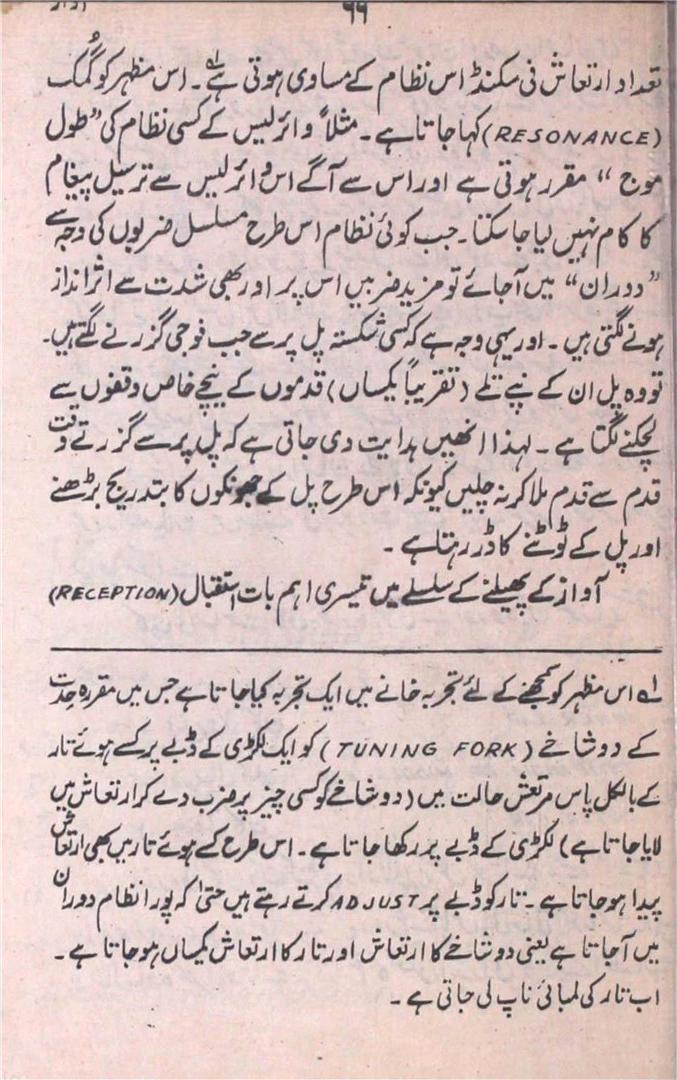 ۶۶
تعداد ارتعاش فی سکنڈ اس نظام کے مساوی ہوتی ہے۔ اس مظہر کو گمک
(RESONANCE) کہا جاتا ہے۔ مثلاً وائرلیس کے کسی نظام کی "طول
موج" مقرر ہوتی ہے اور اس سے آگے اس وائرلیس سے ترسیل پیغام
کا کام نہیں لیا جا سکتا۔ جب کوئی نظام اس طرح مسلسل ضربوں کی وجہ سے
"دوران" میں آجائے تو مزید ضربیں اس پر اور بھی شدت سے اثر انداز
ہونے لگتی ہیں۔ اور یہی وجہ ہے کہ کسی شکستہ پل پر سے جب فوجی گزرنے لگتے ہیں۔
تو وہ پل ان کے نپے تلے (تقریباً یکساں) قدموں کے نیچے خاص وقفوں سے
لچکنے لگتا ہے۔ لہذا انھیں ہدایت دی جاتی ہے کہ پل پر سے گزرتے وقت
قدم سے قدم ملا کر نہ چلیں کیونکہ اس طرح پل کے جھونکوں کا بتدریج بڑھنے
اور پل کے ٹوٹنے کا ڈر رہتا ہے۔
آواز کے پھیلنے کے سلسلے میں تیسری اہم بات استقبال (RECEPTION)
لے اس مظہر کو سمجھنے کے لئے تجربہ خانے میں ایک تجربہ کیا جاتا ہے جس میں مقررہ حدت
کے دو شاخے (TUNING FORK) کو ایک لکڑی کے ڈبے پر کسے ہوئے تار
کے بالکل پاس مرتعش حالت میں (دو شاخے کو کسی چیز پر ضرب دے کر ارتعاش میں
لایا جاتا ہے) لکڑی کے ڈبے پر رکھا جاتا ہے۔ اس طرح کسے ہوئے تار میں بھی ارتعاش
پیدا ہو جاتا ہے۔ تار کو ڈبے پر ADJUST کرتے رہتے ہیں حتیٰ کہ پورا نظام دوران
میں آجاتا ہے یعنی دو شاخے کا ارتعاش اور تار کا ارتعاش یکساں ہو جاتا ہے۔
اب تار کی لمبائی ناپ لی جاتی ہے۔